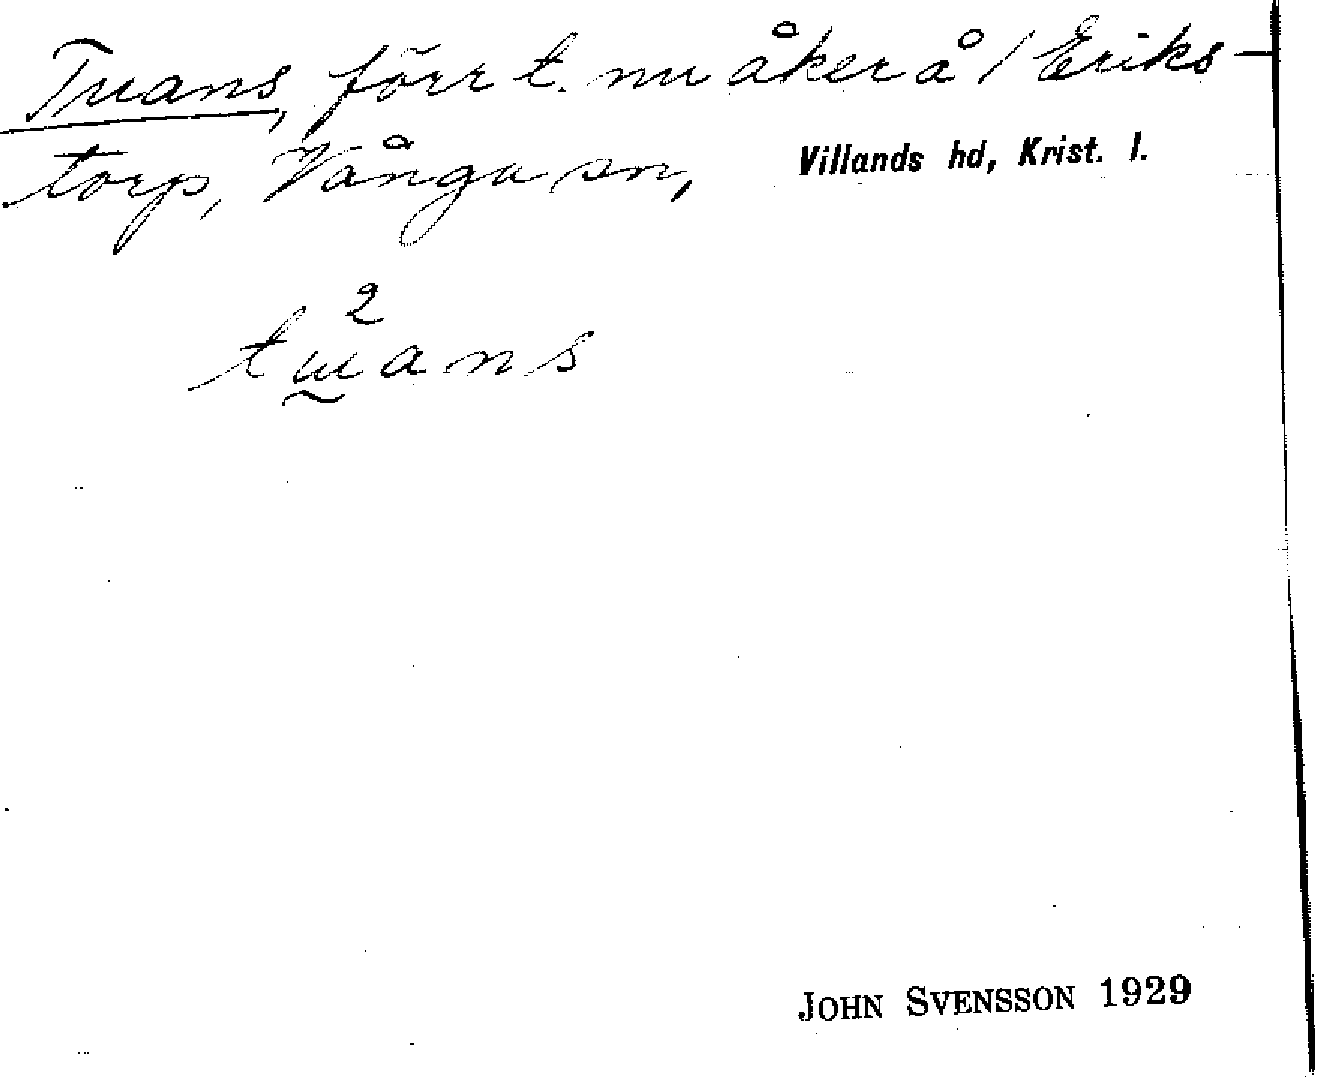 Truans, förr t. nu åker å 1 Eriks-
torp, Vånga sn, Villands hd, Krist. l.
2
JOHN SVENSSON 1929